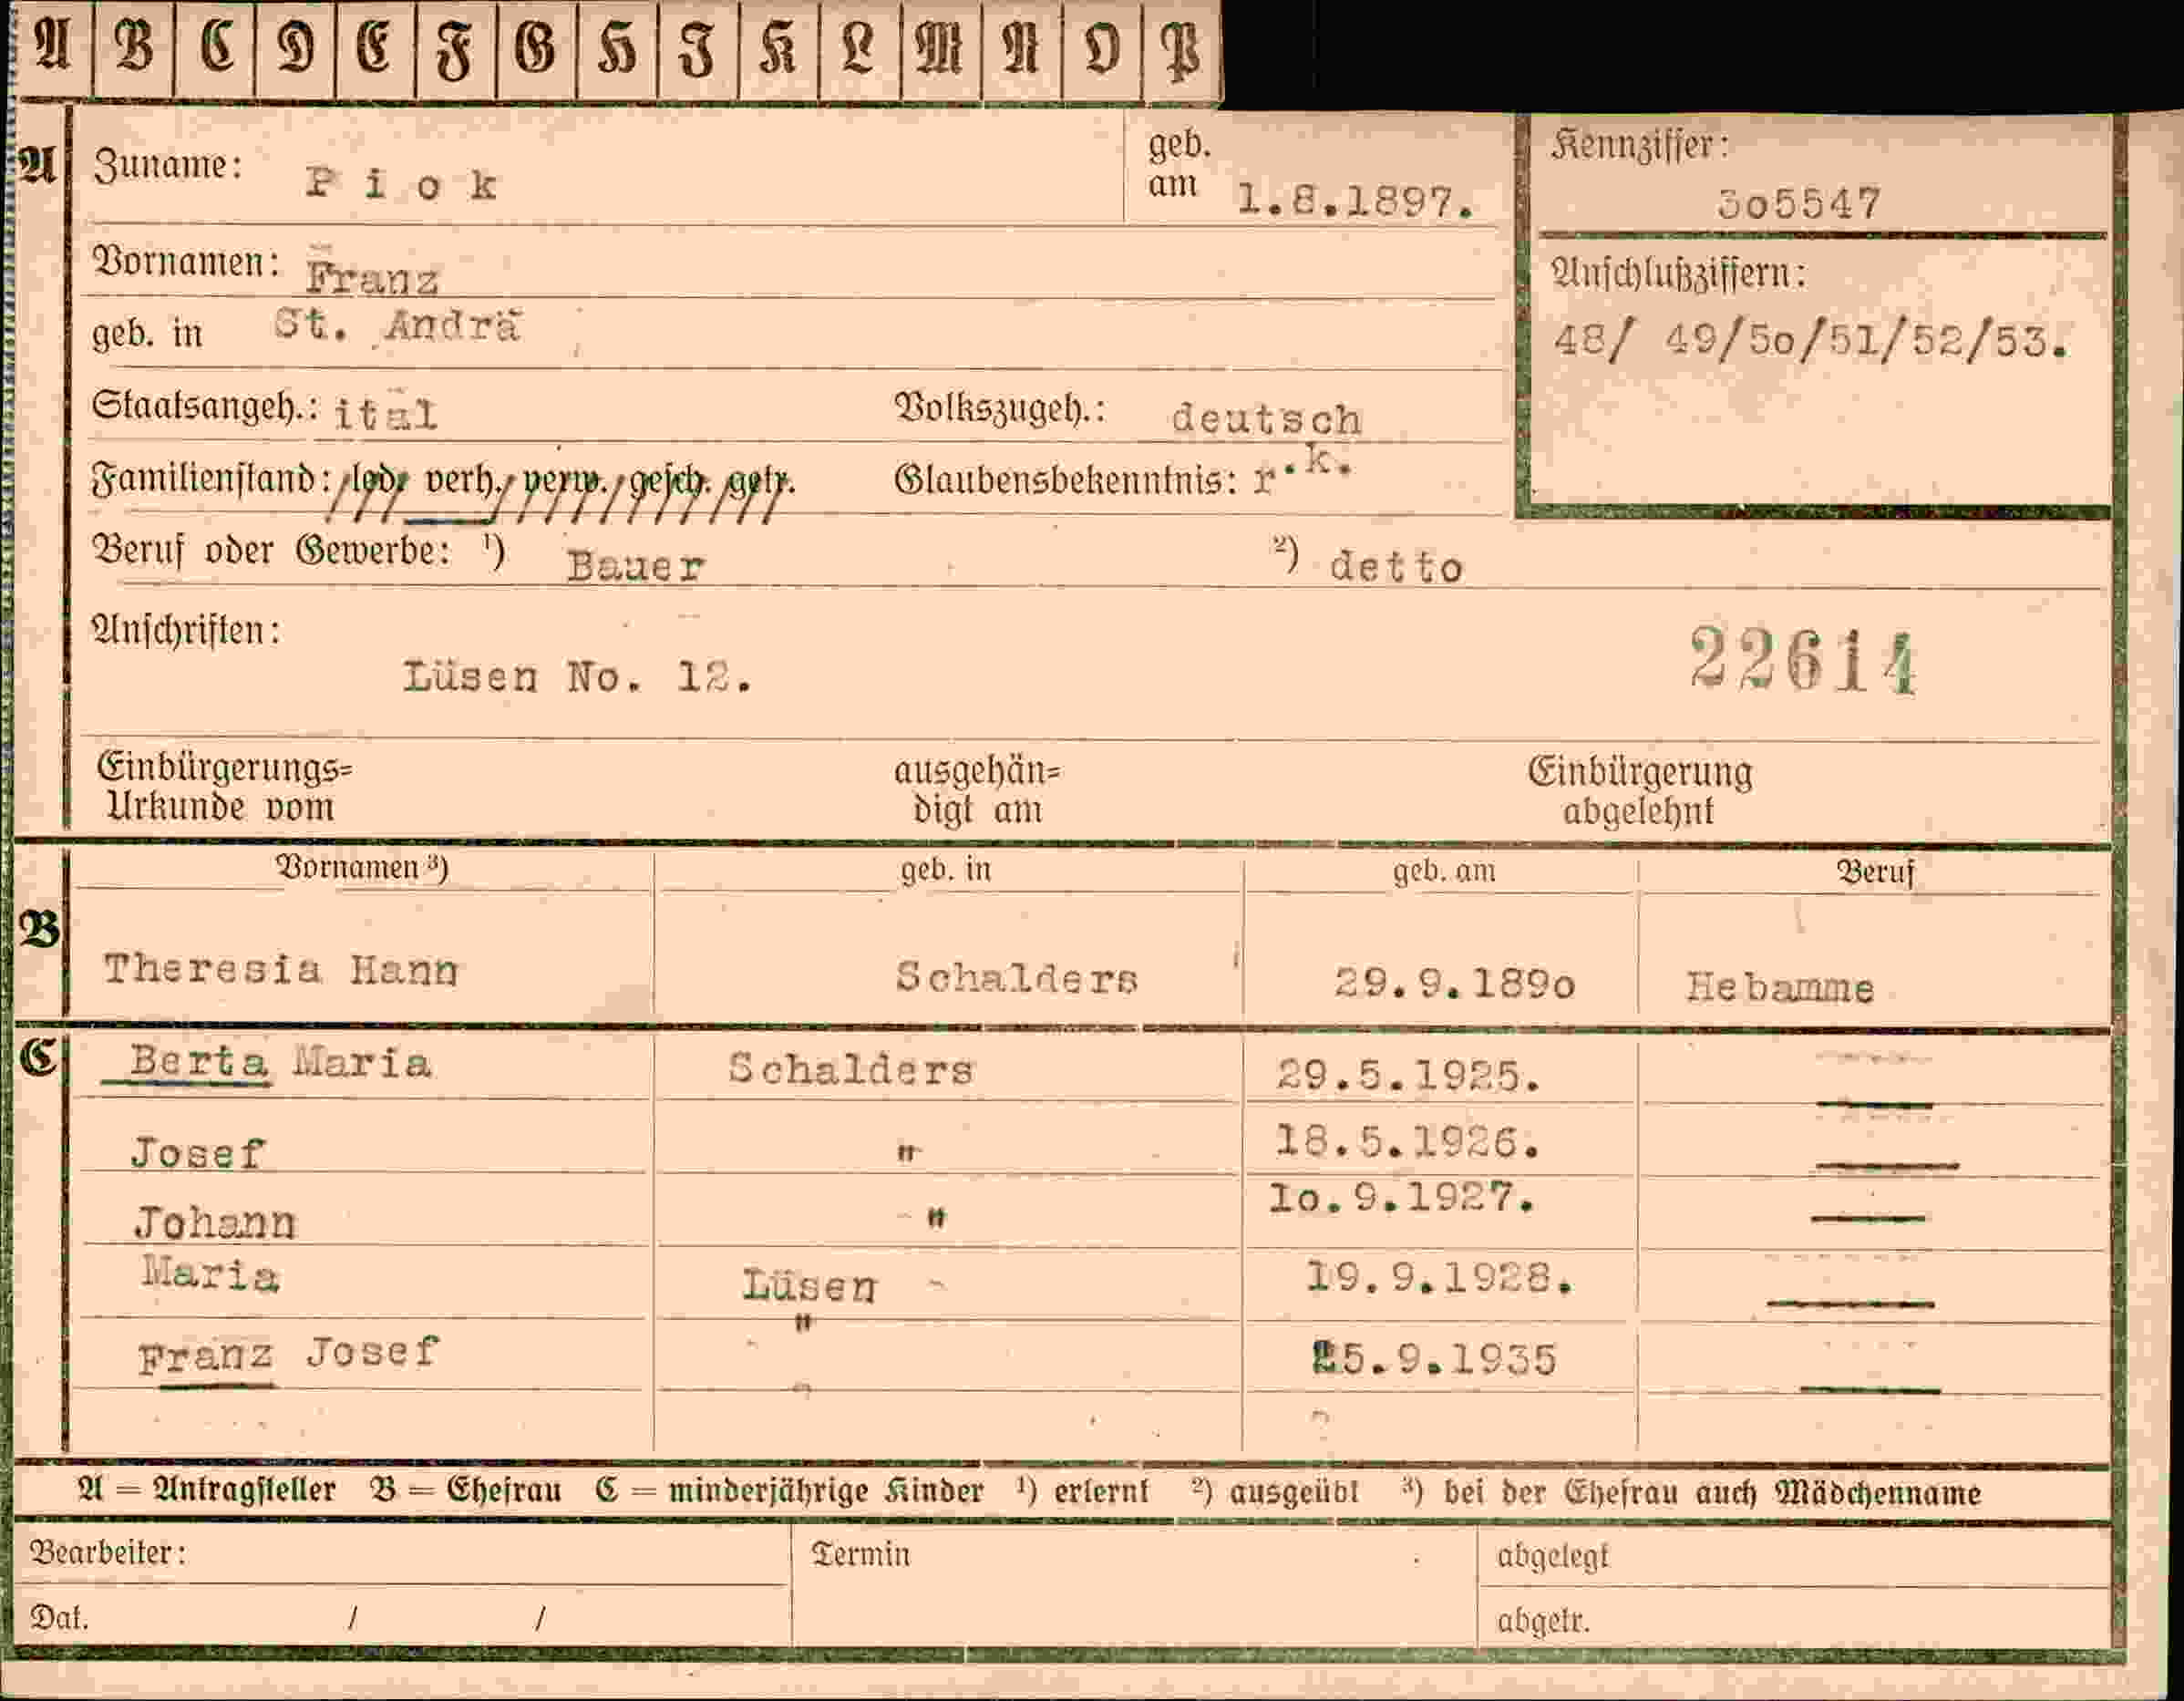 A B C D E F G H I K L M N O P
A Zuname: Piok geb. am 1.8.1897. Kennziffer:
3o5547
Vornamen: Franz
Anschlußziffern:
geb. in St. Andrä
48/ 49/5o/51/52/53.
Staatsangeh.: ital Volkszugeh.: deutsch
Familienstand: led. verh. verw. gesch. getr. Glaubensbekenntnis: r.k.
Beruf oder Gewerbe: ¹) Bauer ²) detto
Anschriften:
Lüsen No. 12. 22614
Einbürgerungs= ausgehän= Einbürgerung
Urkunde vom digt am abgelehnt
Vornamen ³) geb. in geb. am Beruf
B
Theresia Hann Schalders 29.9.189o Hebamme
C Berta Maria Schalders 29.5.1925.
Josef " 18.5.1926.
Johann " 1o.9.1927.
Maria Lüsen 19.9.1928.
Franz Josef " 25.9.1935
A = Antragsteller B = Ehefrau C = minderjährige Kinder ¹) erlernt ²) ausgeübt ³) bei der Ehefrau auch Mädchenname
Bearbeiter: Termin abgelegt
Dat. / / abgetr.